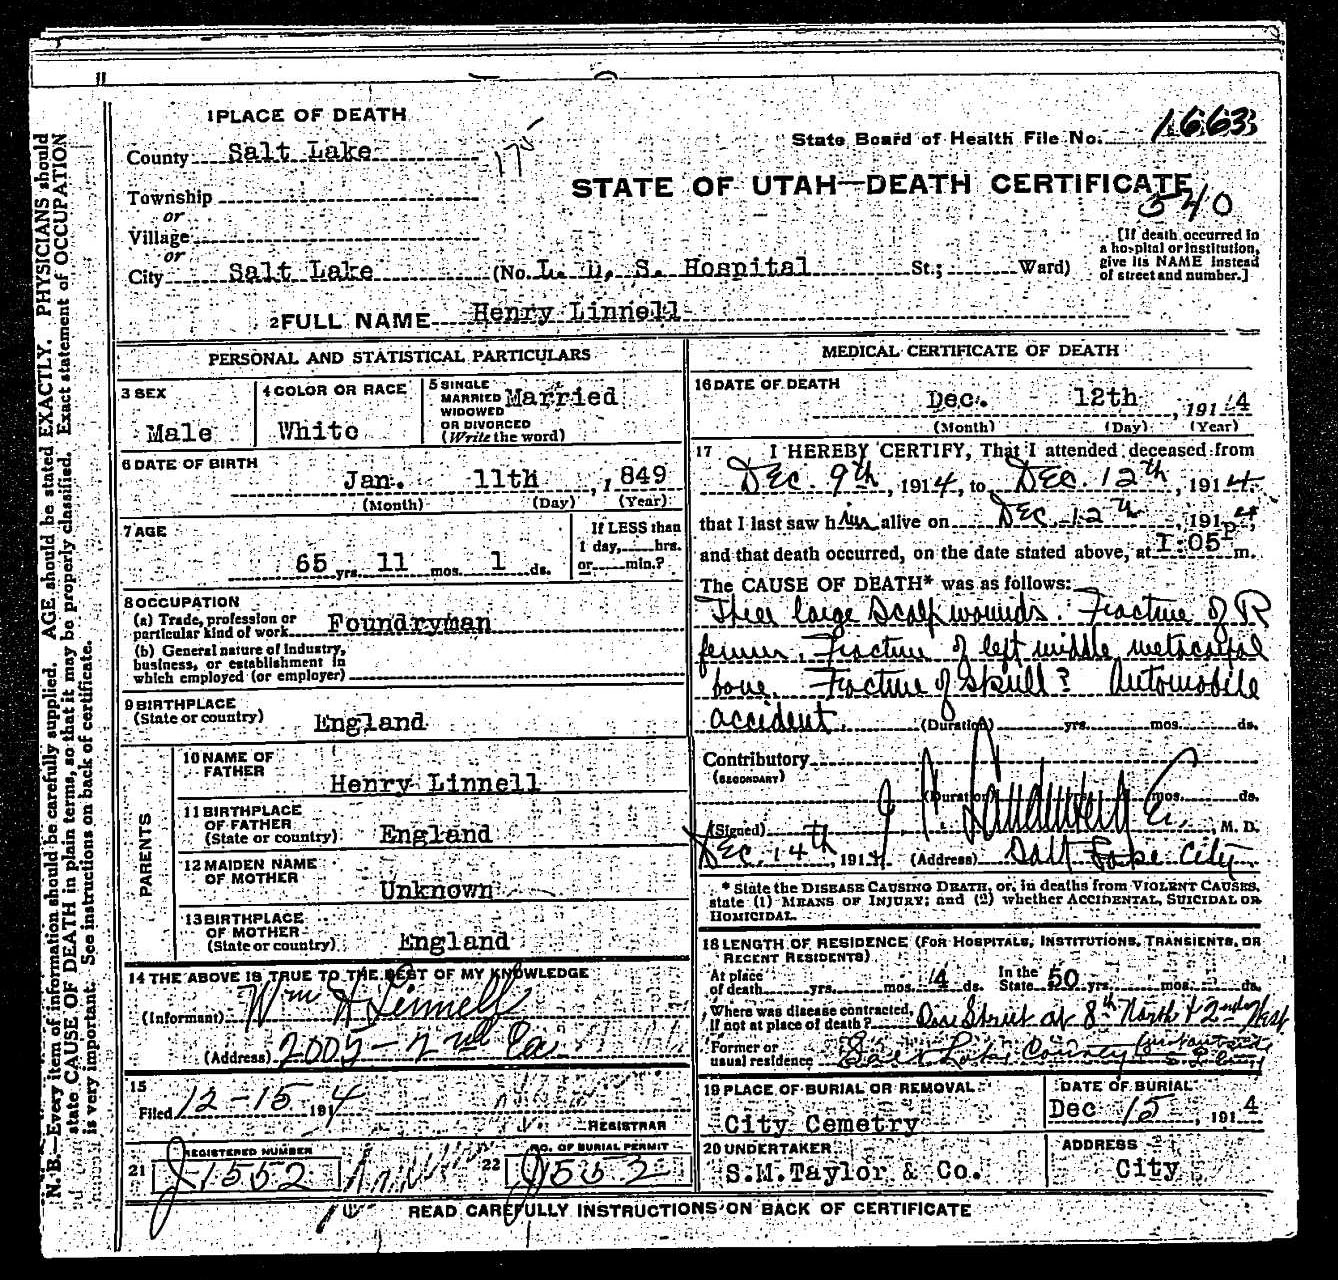 1 PLACE OF DEATH
State Board of Health File No. 1663
County Salt Lake
175
STATE OF UTAH—DEATH CERTIFICATE
540
Township
or
Village
or
City Salt Lake (No. L. D. S. Hospital St.; Ward)
[If death occurred in
a hospital or institution,
give its NAME instead
of street and number.]
2 FULL NAME Henry Linnell
PERSONAL AND STATISTICAL PARTICULARS
3 SEX
Male
4 COLOR OR RACE
White
5 SINGLE
MARRIED
WIDOWED
OR DIVORCED
(Write the word)
Married
6 DATE OF BIRTH
Jan. 11th, 1849
(Month) (Day) (Year)
7 AGE
65 yrs. 11 mos. 1 ds.
If LESS than
1 day, hrs.
or min.?
8 OCCUPATION
(a) Trade, profession or
particular kind of work Foundryman
(b) General nature of industry,
business, or establishment in
which employed (or employer)
9 BIRTHPLACE
(State or country) England
PARENTS
10 NAME OF
FATHER
Henry Linnell
11 BIRTHPLACE
OF FATHER
(State or country) England
12 MAIDEN NAME
OF MOTHER
Unknown
13 BIRTHPLACE
OF MOTHER
(State or country) England
14 THE ABOVE IS TRUE TO THE BEST OF MY KNOWLEDGE
(Informant) Wm H Linnell
(Address) 2005 - 2nd Ea
15
Filed 12-15 1914
REGISTRAR
21 REGISTERED NUMBER
J1552
22 NO. OF BURIAL PERMIT
MEDICAL CERTIFICATE OF DEATH
16 DATE OF DEATH
Dec. 12th, 1914
(Month) (Day) (Year)
17 I HEREBY CERTIFY, That I attended deceased from
Dec. 9th, 1914, to Dec. 12th, 1914
that I last saw him alive on Dec. 12th 1914
and that death occurred, on the date stated above, at 1:05 P m.
The CAUSE OF DEATH* was as follows:
Three large Scalp wounds. Fracture of R
femur. Fracture of left middle metacarpal
bone. Fracture of Skull? Automobile
accident. (Duration) yrs. mos. ds.
Contributory
(SECONDARY)
(Duration) mos. ds.
(Signed) M. D.
Dec. 14th, 1914 (Address) Salt Lake City
* State the DISEASE CAUSING DEATH, or, in deaths from VIOLENT CAUSES,
state (1) MEANS OF INJURY; and (2) whether ACCIDENTAL, SUICIDAL OR
HOMICIDAL.
18 LENGTH OF RESIDENCE (FOR HOSPITALS, INSTITUTIONS, TRANSIENTS, OR
RECENT RESIDENTS)
At place
of death yrs. mos. 4 ds.
In the
State 50 yrs. mos. ds.
Where was disease contracted,
if not at place of death? On Street at 8th North & 2nd West
Former or
usual residence Salt Lake County
19 PLACE OF BURIAL OR REMOVAL
City Cemetry
DATE OF BURIAL
Dec 15, 1914
20 UNDERTAKER
S.M.Taylor & Co.
ADDRESS
City
READ CAREFULLY INSTRUCTIONS ON BACK OF CERTIFICATE
N. B.—Every item of information should be carefully supplied. AGE should be stated EXACTLY. PHYSICIANS should
state CAUSE OF DEATH in plain terms, so that it may be properly classified. Exact statement of OCCUPATION
is very important. See instructions on back of certificate.